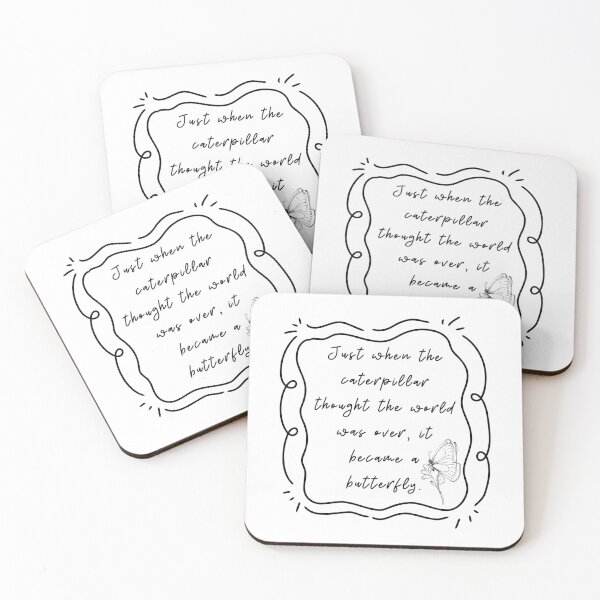 Just when the
caterpillar
thought the world
it
Just when the
caterpillar
thought the world
was over, it
became a
Just when the
caterpillar
thought the world
was over, it
became a
butterfly.
Just when the
caterpillar
thought the world
was over, it
became a
butterfly.